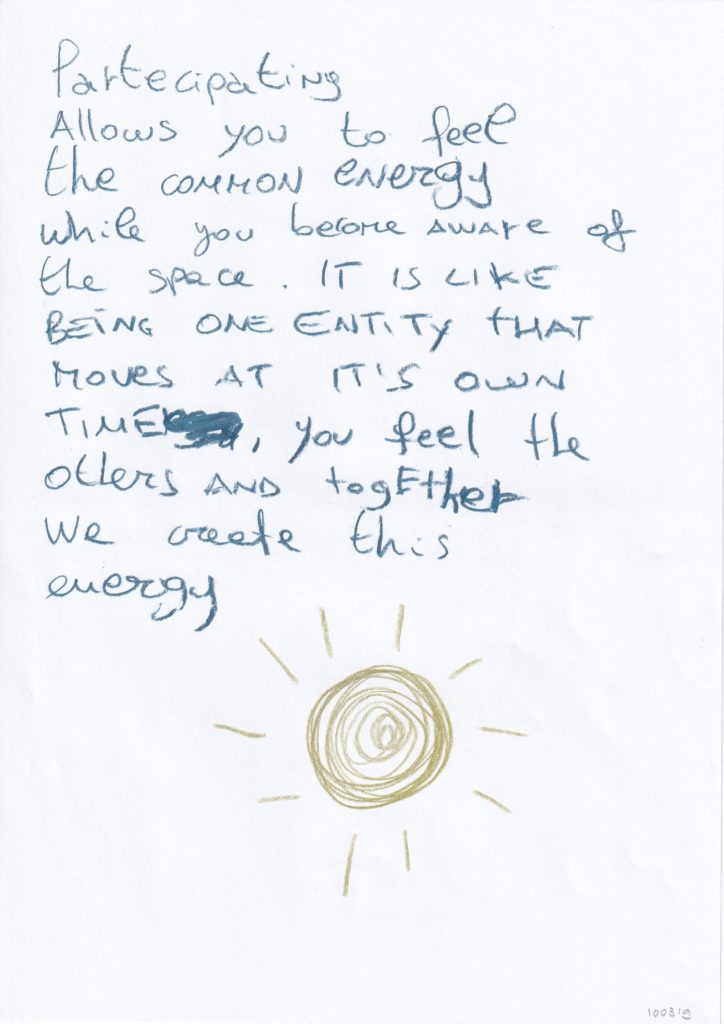 Partecipating
Allows you to feel
the common energy
while you become aware of
the space. IT IS LIKE
BEING ONE ENTITY tHAT
MOVES AT IT'S OWN
TIME, you feel the
others AND togEther
We create this
energy
100319